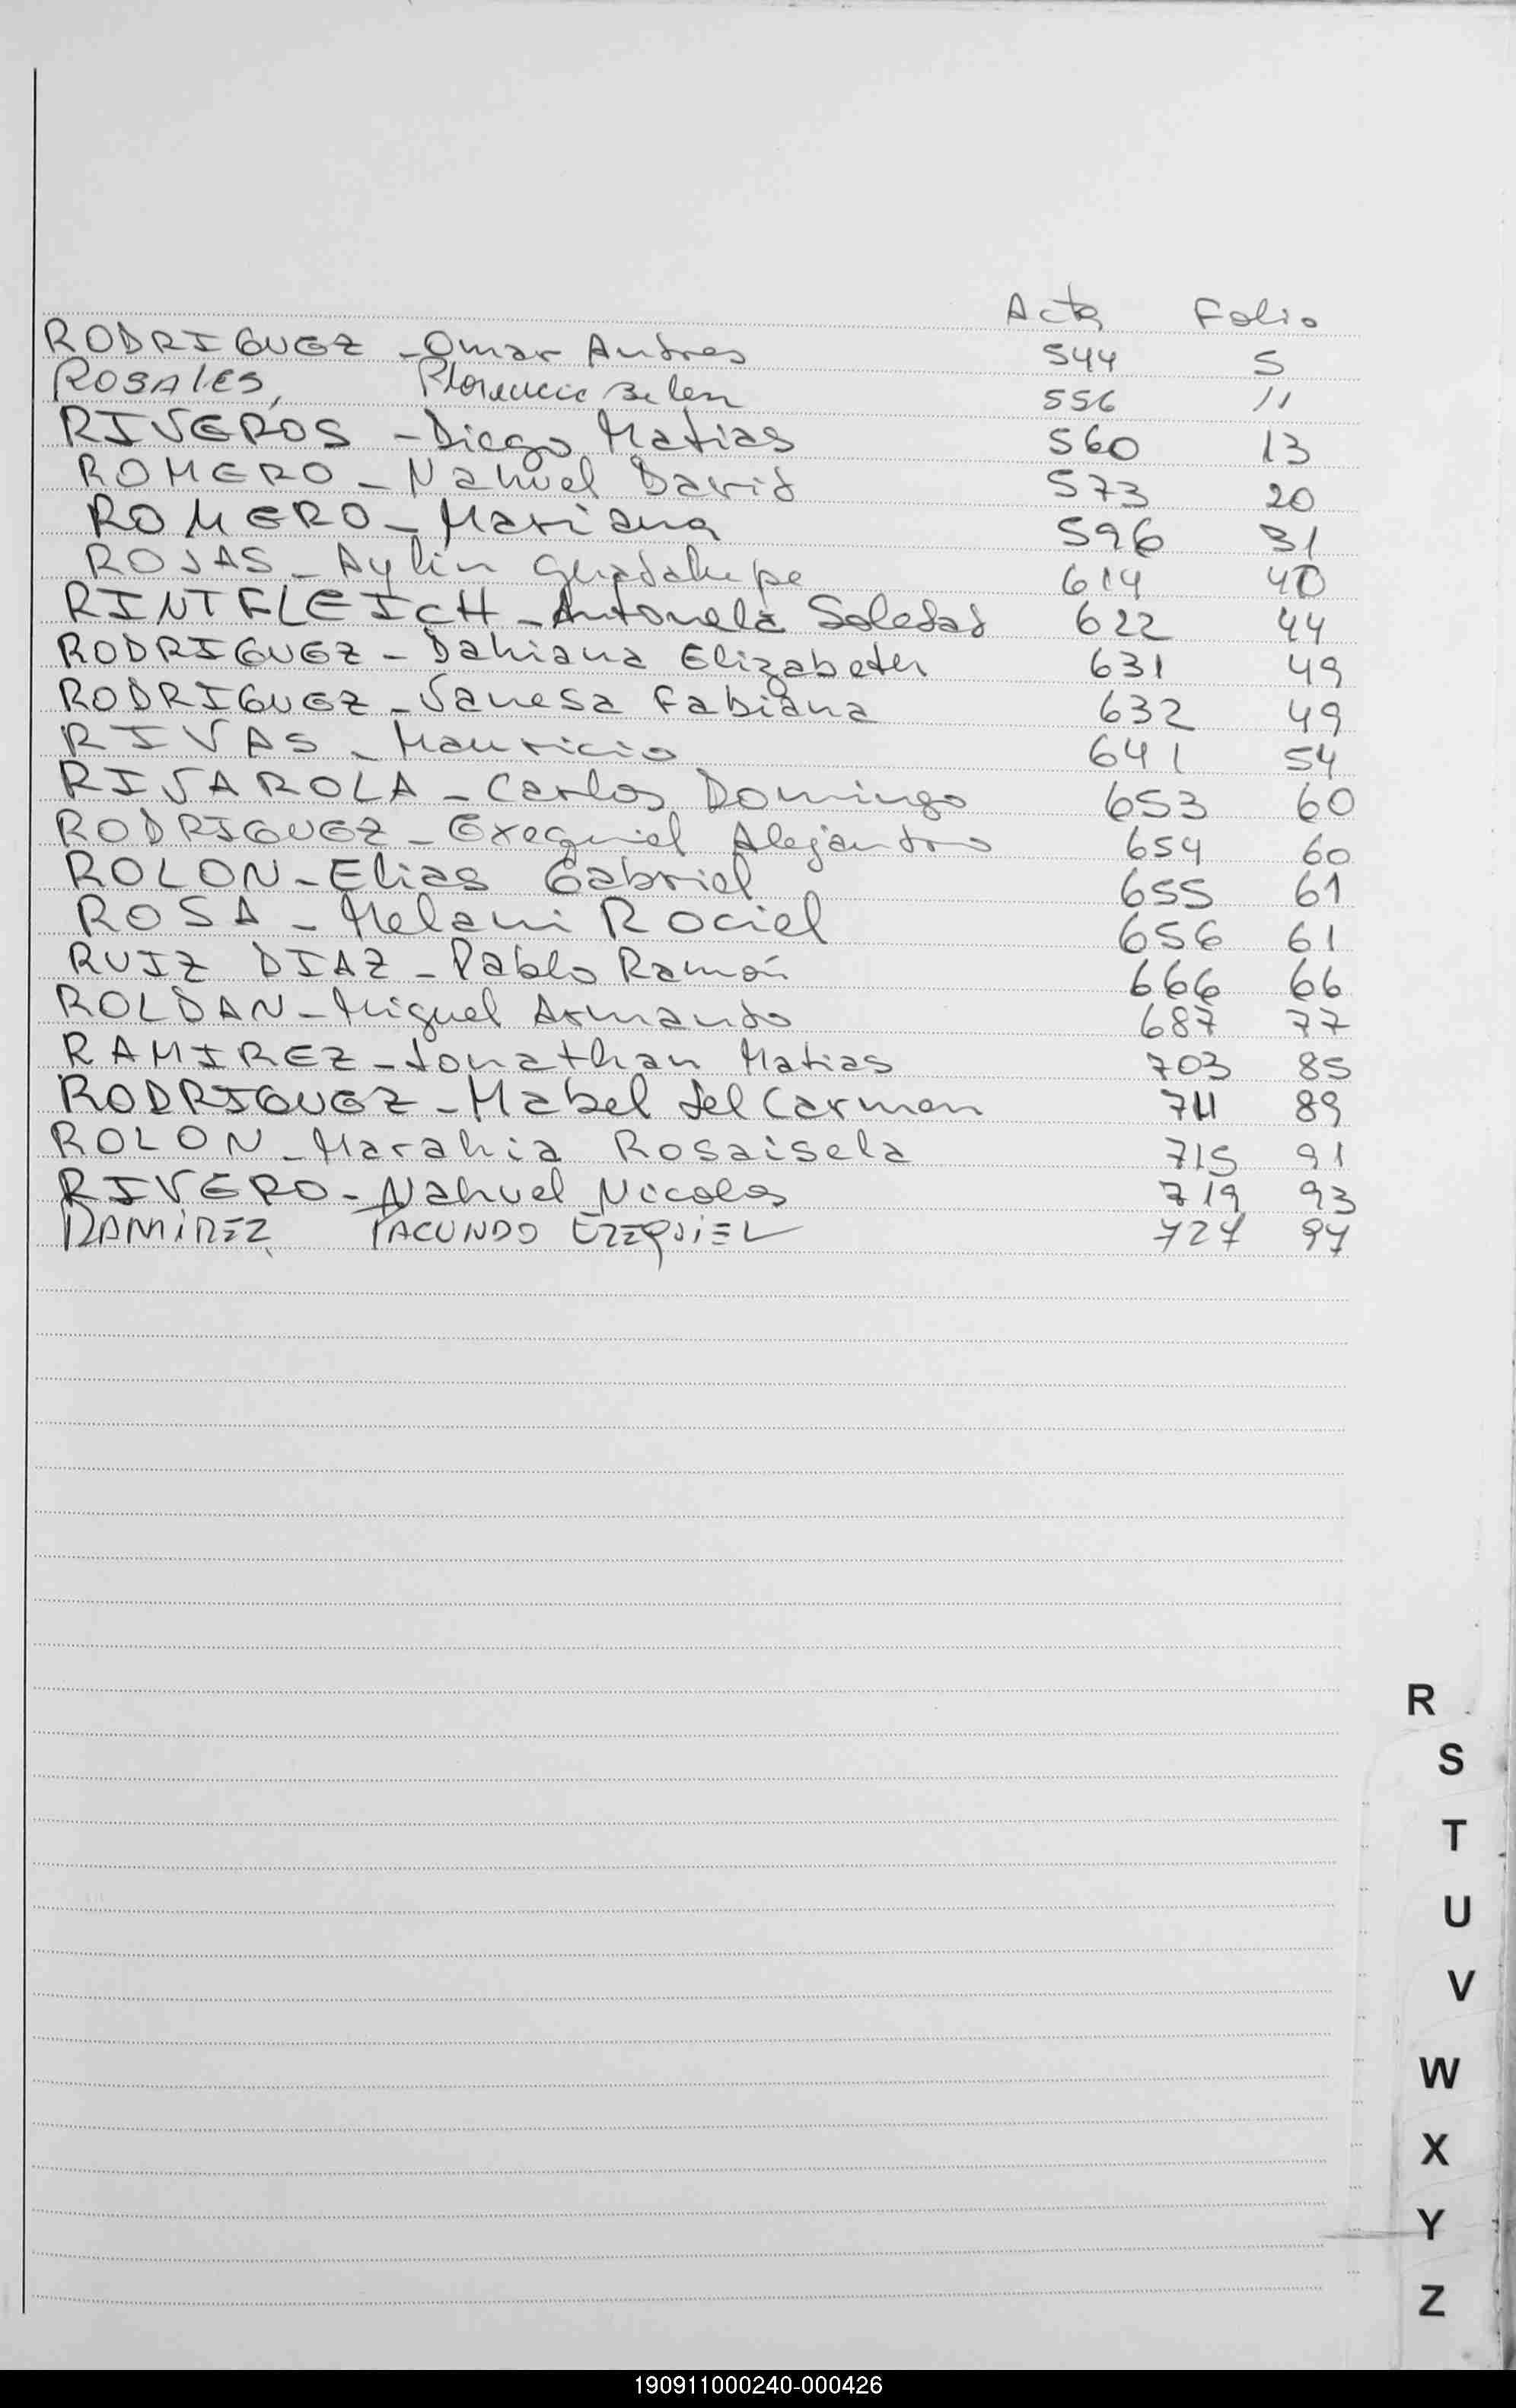 Acta Folio
RODRIGUEZ - Omar Andres 544 5
ROSALES, Florencia Belen 556 11
RIVEROS - Diego Matias 560 13
ROMERO - Nahuel David 573 20
ROMERO - Mariana 596 31
ROJAS - Aylin Guadalupe 614 40
RINTFLEICH - Antonela Soledad 622 44
RODRIGUEZ - Dahiana Elizabeth 631 49
RODRIGUEZ - Vanesa Fabiana 632 49
RIVAS - Mauricio 641 54
RIVAROLA - Carlos Domingo 653 60
RODRIGUEZ - Exequiel Alejandro 654 60
ROLON - Elias Gabriel 655 61
ROSA - Melani Rociel 656 61
RUIZ DIAZ - Pablo Ramón 666 66
ROLDAN - Miguel Armando 687 77
RAMIREZ - Jonathan Matias 703 85
RODRIGUEZ - Mabel del Carmen 711 89
ROLON - Marahia Rosaisela 715 91
RIVERO - Nahuel Nicolas 719 93
RAMIREZ FACUNDO EZEQUIEL 727 97
R
S
T
U
V
W
X
Y
Z
190911000240-000426